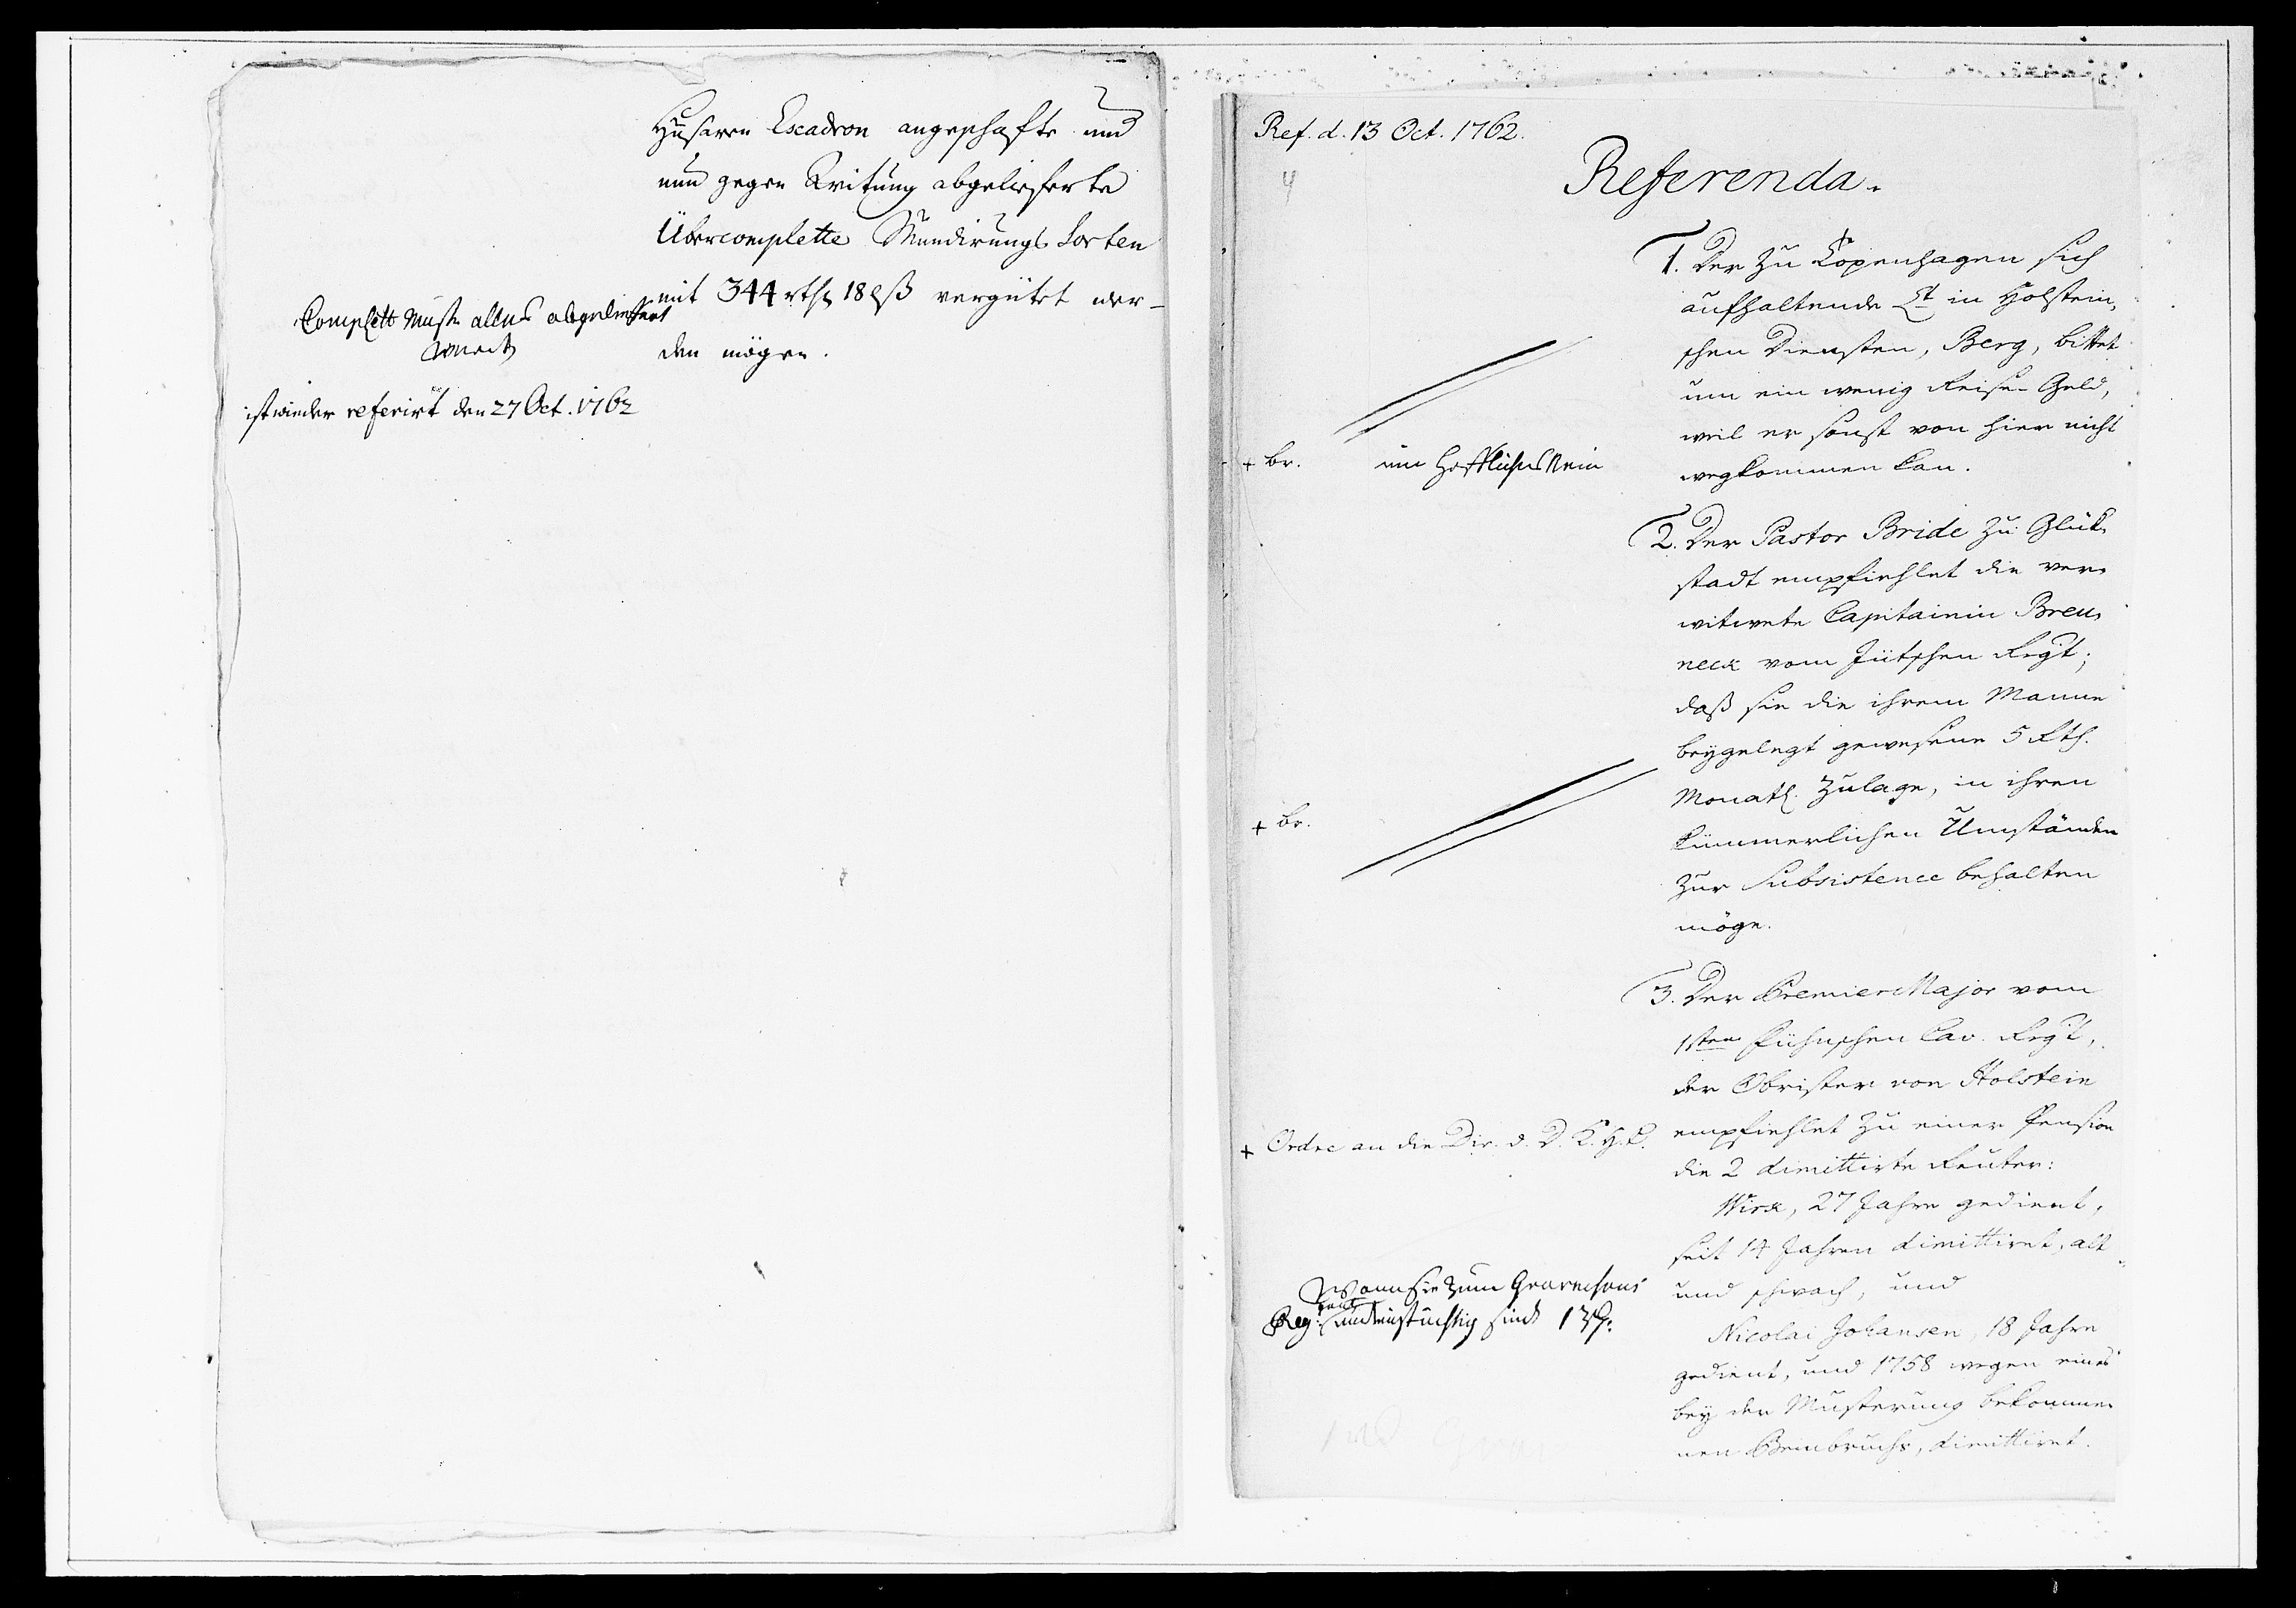 Husaren Escadron angeschafte und
nun gegen Quitung abgelieferte
Übercomplette Mundirungs Sorten
mit 344 rthl 18 lß vergütet wer-
den mögen.
Complett muste alles abgeliefert
werden
ist wieder referirt den 27 Oct. 1762
Ref. d. 13 Oct. 1762.
4
Referenda.
1. Der zu Copenhagen sich
aufhaltende Lt in Holstein,
schen Diensten, Berg, bittet
um ein wenig Reise-Geld,
weil er sonst von hier nicht
wegkommen kan.
+ br.
ein höffliches Nein
2. Der Pastor Bride zu Glük,
stadt empfiehlet die ver,
witwete Capitainin Breu,
neck vom Jütschen Regt;
daß sie die ihrem Manne
beygelegt gewesene 5 Rth.
Monatl. Zulage, in ihren
kümmerlichen Umständen
zur Subsistence behalten
möge.
+ br.
3. Der Premier Major vom
1sten Fühnschen Cav. Regt,
der Obrister von Holstein
empfiehlet zu einer Pension
die 2 dimittirte Reuter:
Wirx, 27 Jahre gedient,
seit 14 Jahren dimittiret, alt
und schwach, und
Nicolai Johansen, 18 Jahre
gedient, und 1758 wegen eines
bey der Musterung bekomme,
nen Beinbruchs, dimittiret.
+ Ordre an die Dir. d. D. K. H. C.
Wann sie zum Guarnisons
Reg: untüchtig sind 1